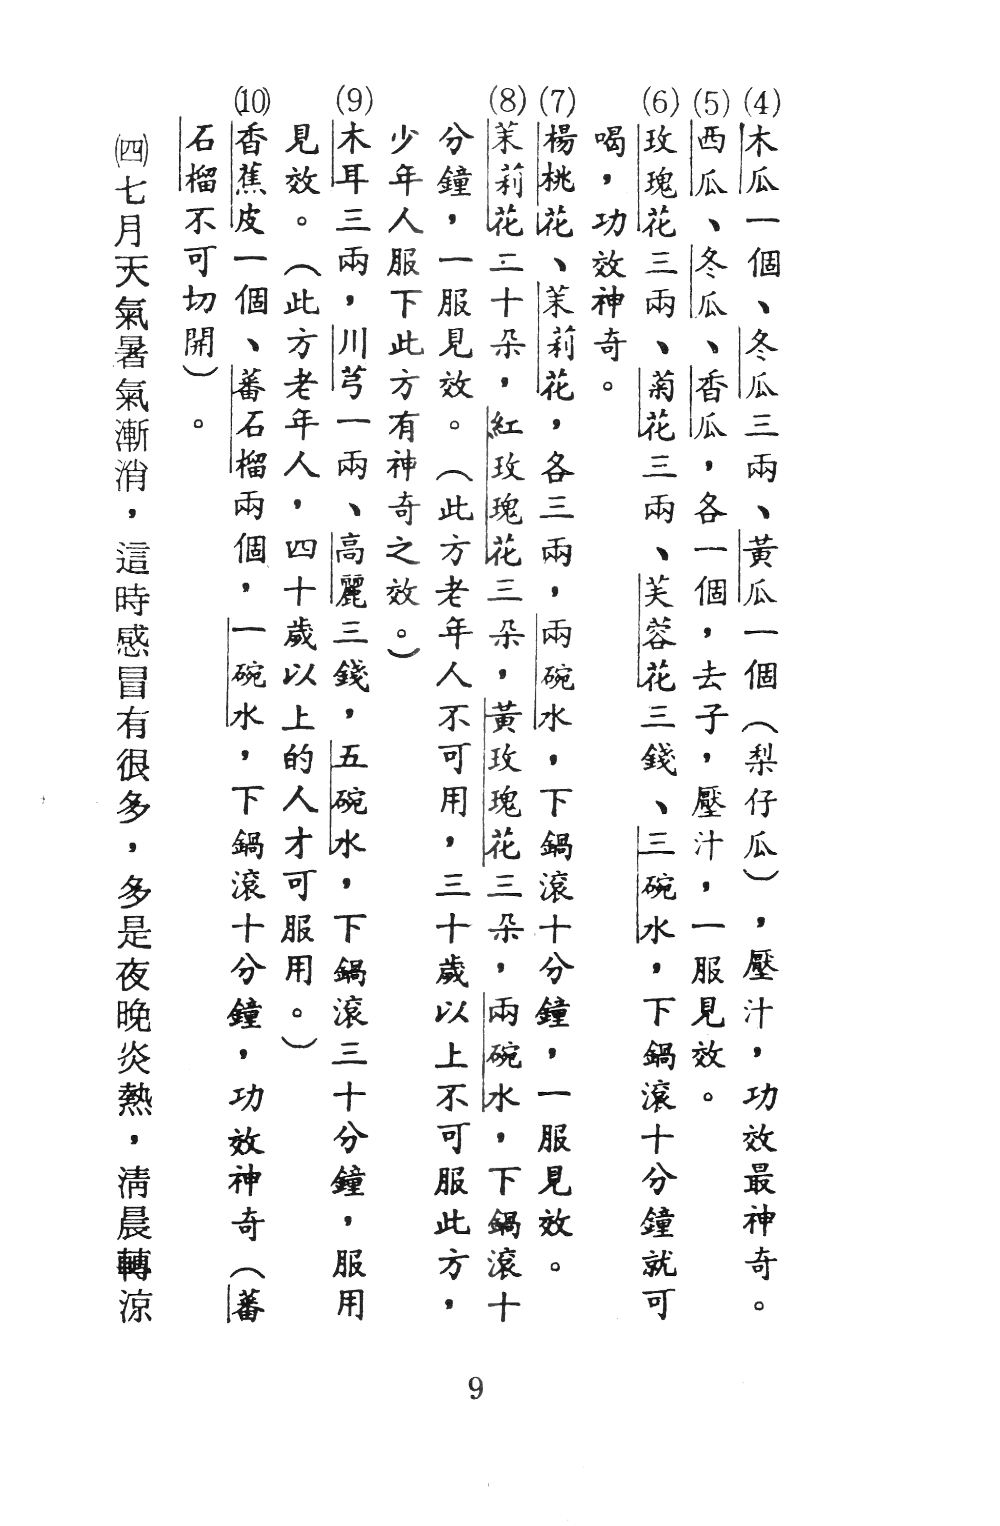 (4)木瓜一個、冬瓜三兩、黃瓜一個（梨仔瓜），壓汁，功效最神奇。
(5)西瓜、冬瓜、香瓜，各一個，去子，壓汁，一服見效。
(6)玫瑰花三兩、菊花三兩、芙蓉花三錢、三碗水，下鍋滾十分鐘就可
喝，功效神奇。
(7)楊桃花、茉莉花，各三兩，兩碗水，下鍋滾十分鐘，一服見效。
(8)茉莉花二十朵，紅玫瑰花三朵，黃玫瑰花三朵，兩碗水，下鍋滾十
分鐘，一服見效。（此方老年人不可用，三十歲以上不可服此方，
少年人服下此方有神奇之效。）
(9)木耳三兩，川芎一兩、高麗三錢，五碗水，下鍋滾三十分鐘，服用
見效。（此方老年人，四十歲以上的人才可服用。）
(10)香蕉皮一個、蕃石榴兩個，一碗水，下鍋滾十分鐘，功效神奇（蕃
石榴不可切開）。
㈣七月天氣暑氣漸消，這時感冒有很多，多是夜晚炎熱，清晨轉涼
9